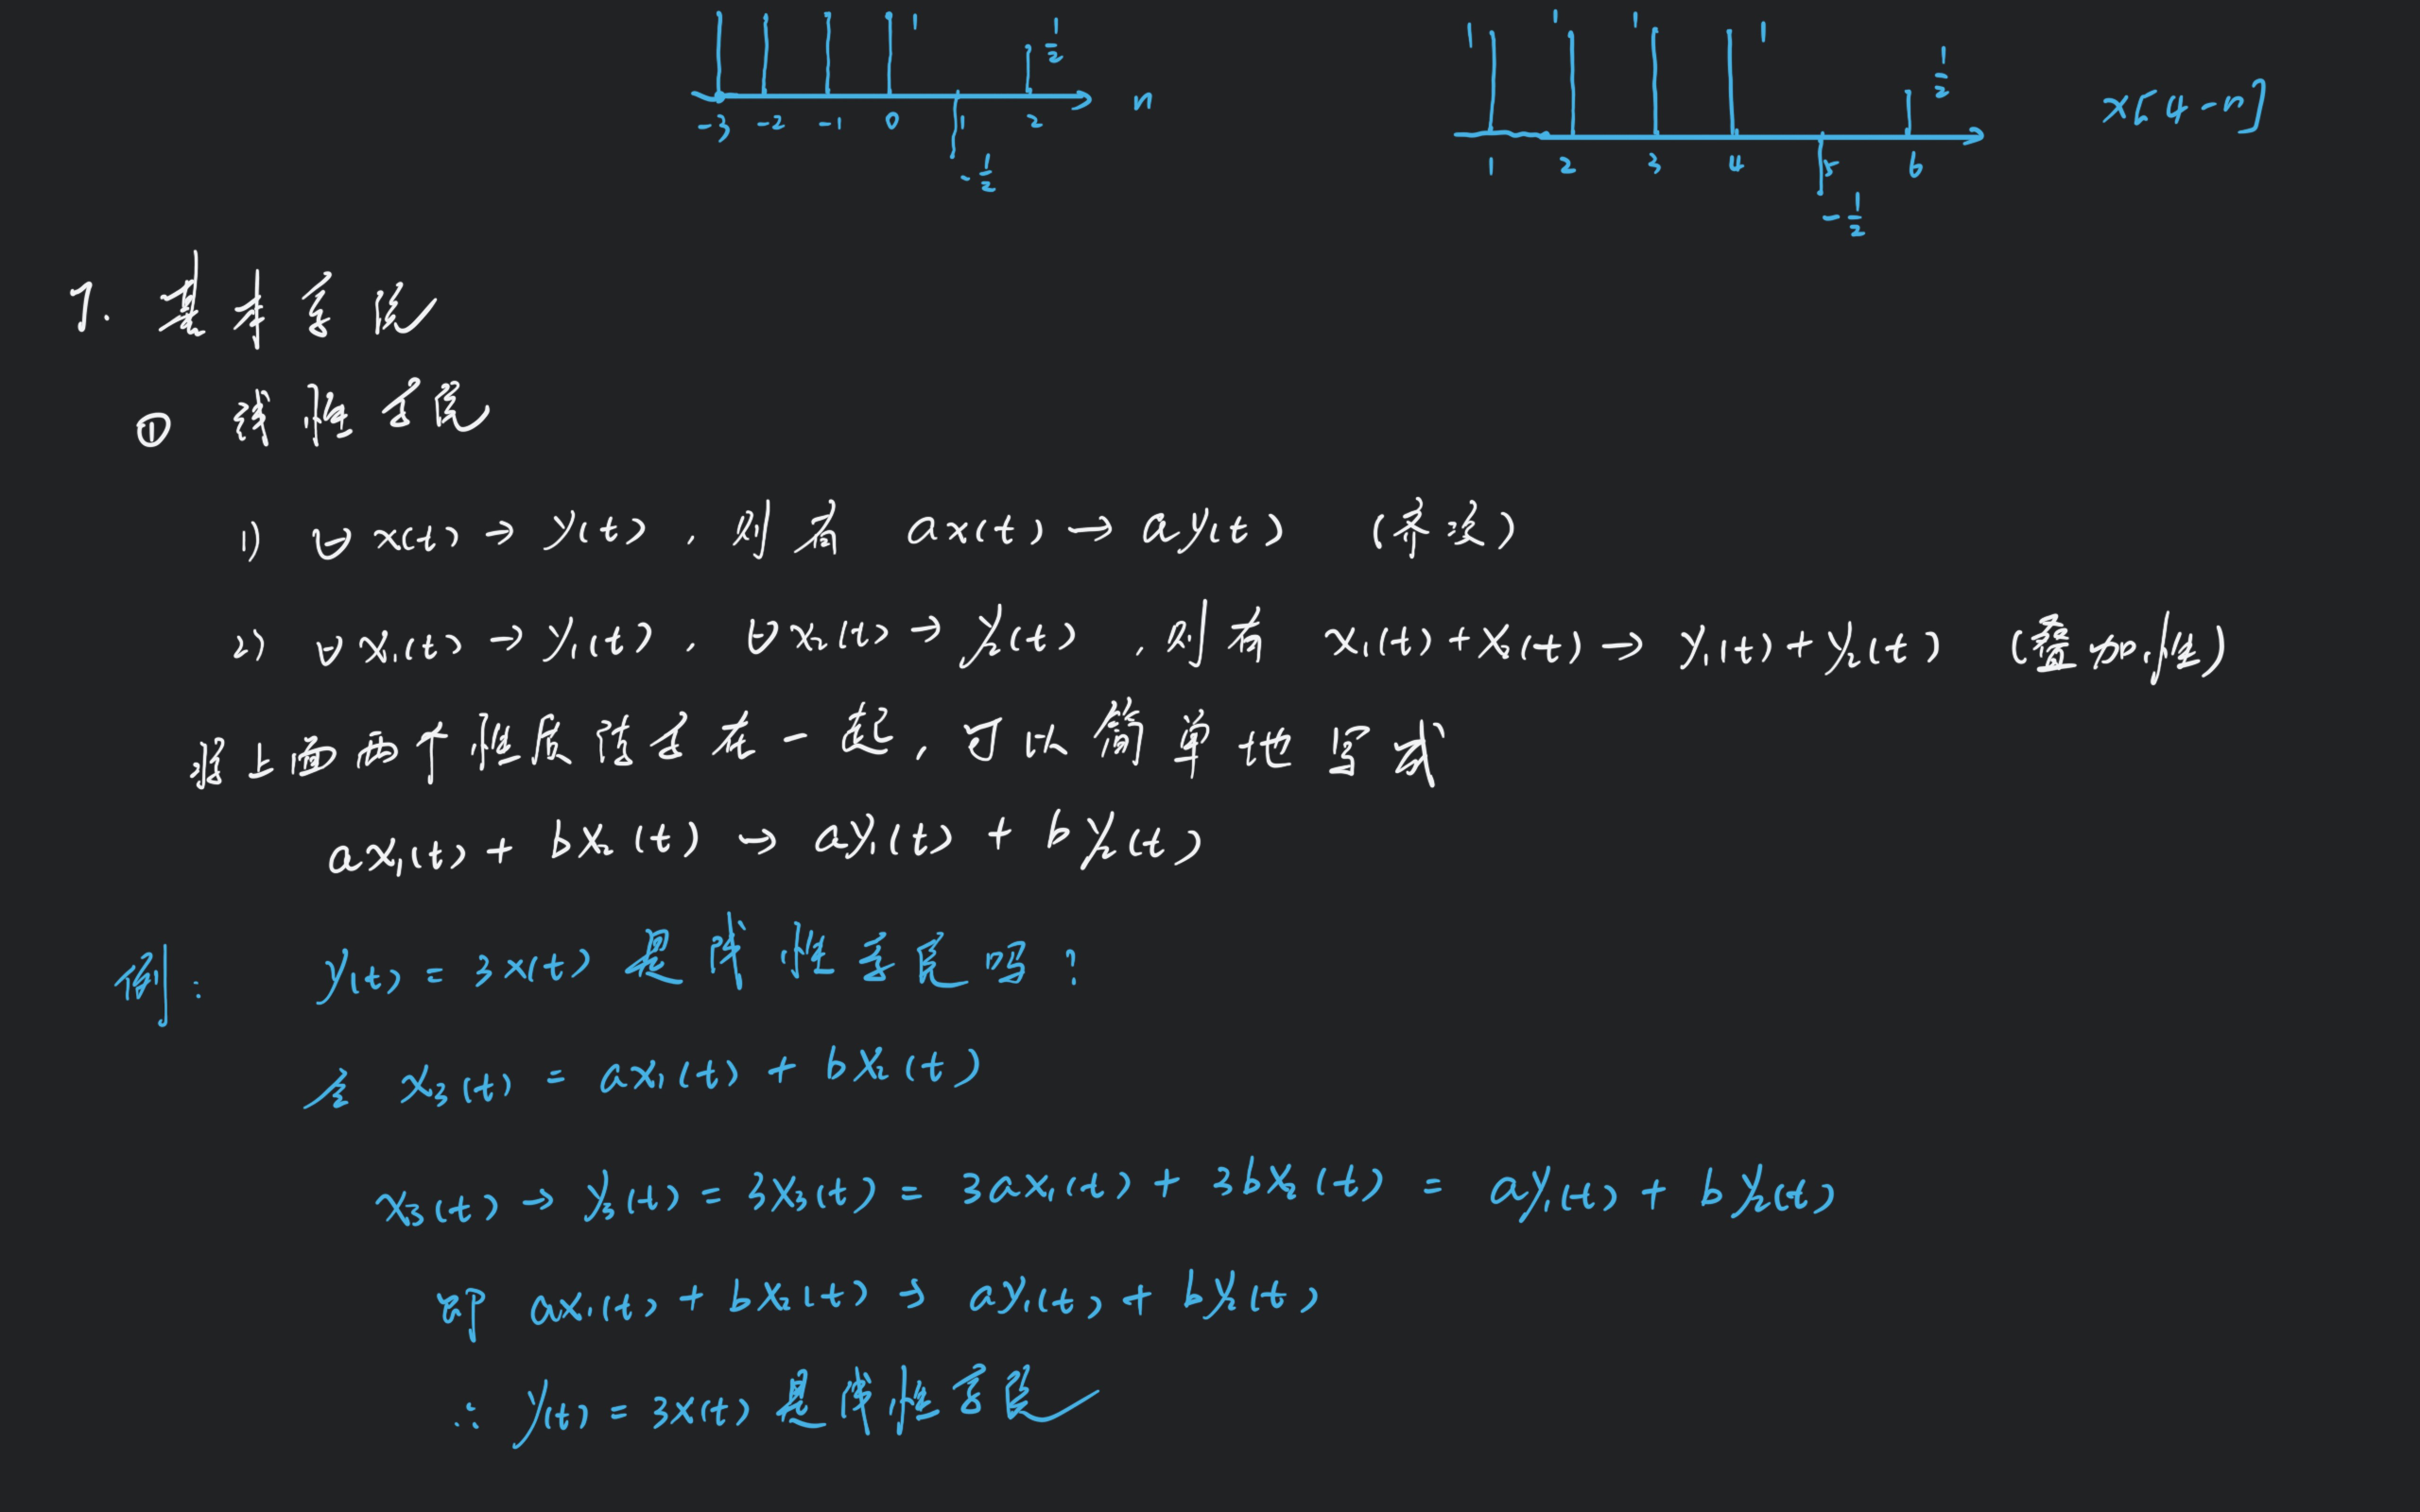 1 1/2 1 1 1 1 1/2
n x[4-n]
-3 -2 -1 0 1 2 1 2 3 4 5 6
-1/2 -1/2
7. 基本系统
① 线性系统
1) ∀ x(t) → y(t), 则有 ax(t) → ay(t) (齐次)
2) ∀ x₁(t) → y₁(t), ∀ x₂(t) → y₂(t), 则有 x₁(t)+x₂(t) → y₁(t)+y₂(t) (叠加性)
将上面两个性质结合在一起, 可以简单地写成
ax₁(t) + bx₂(t) → ay₁(t) + by₂(t)
例: y(t) = 3x(t) 是线性系统吗?
令 x₃(t) = ax₁(t) + bx₂(t)
x₃(t) → y₃(t) = 3x₃(t) = 3ax₁(t) + 3bx₂(t) = ay₁(t) + by₂(t)
即 ax₁(t) + bx₂(t) → ay₁(t) + by₂(t)
∴ y(t) = 3x(t) 是线性系统